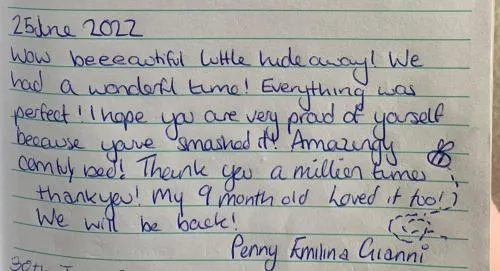 25 June 2022
Wow beeeautiful little hideaway! We
had a wonderful time! Everything was
perfect! I hope you are very proud of yourself
because youve smashed it! Amazingly
comfy bed! Thank you a million times
thankyou! My 9 month old loved it too!
We will be back!
Penny Emilina Gianni
30th